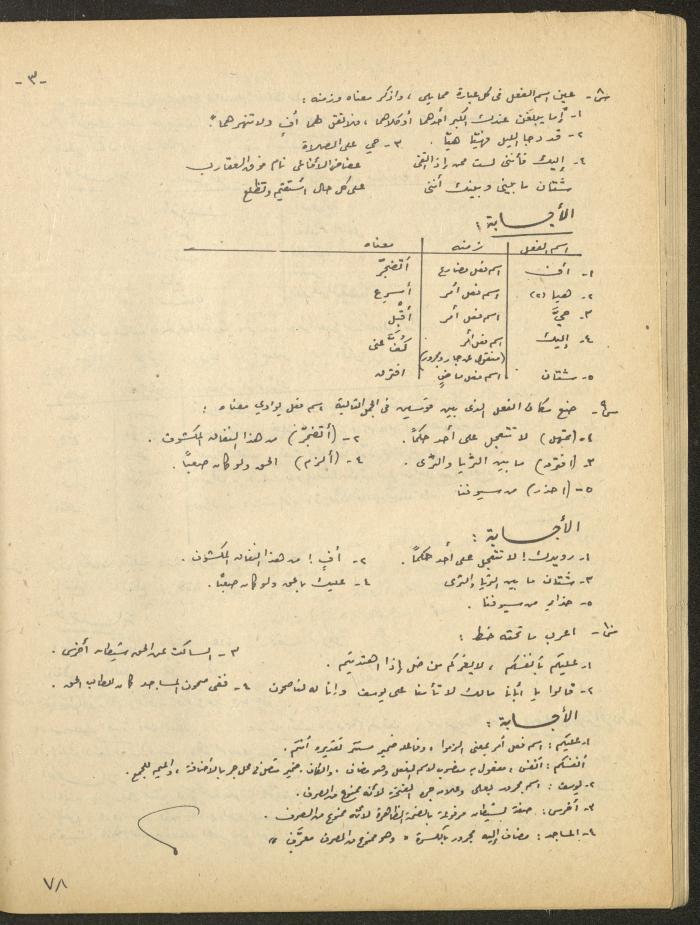 -٣-
س٨- عين اسم الفعل في كل عبارة مما يلي ، واذكر معناه وزمنه :
١- إما يبلغن عندك الكبر أحدهما أو كلاهما ، فلا تقل لهما أفٍ ولا تنهرهما .
٢- قد دجا الليل فهيّا هيّا . ٣- حي على الصلاة
٤- إليك فأنني لست ممن إذا اتقى عضاض الأفاعي نام فوق العقارب
شتان ما بيني وبينك أنني على كل حال أستقيم وتظلع
الأجابة :
اسم الفعل زمنه معناه
١- أف اسم فعل مضارع أتضجّر
٢- هيا (٢) اسم فعل أمر أسرع
٣- حيَّ اسم فعل أمر أقبل
٤- إليك اسم فعل أمر (منقول عن جار ومجرور) كُفَّ عني
٥- شتان اسم فعل ماضٍ افترق
س٩- ضع مكان الفعل الذي بين قوسين في الجمل التالية اسم فعل يوازي معناه :
١- (تمهل) لا تتعجل على أحد حكماً . ٢- (أتضجّر) من هذا النفاق المكشوف .
٣- (افترق) ما بين الثريا والثرى . ٤- (ألزم) الحق ولو كان صعباً .
٥- (احذر) من سيوفنا
الأجابة :
١- رويدك ! لا تتعجل على أحد حكماً . ٢- أفٍ ! من هذا النفاق المكشوف .
٣- شتان ما بين الثريا والثرى ٤- عليك بالحق ولو كان صعباً .
٥- حذارِ من سيوفنا .
س١٠- اعرب ما تحته خط :
١- عليكم بأنفسكم ، لا يضركم من ضل إذا اهتديتم . ٣- الساكت عن الحق شيطان أخرس .
٢- قالوا يا أبانا مالك لا تأمنا على يوسف وإنا له لناصحون ٤- ففي صحون المساجد كان للطالب الحق .
الأجابة :
١- عليكم : اسم فعل أمر بمعنى الزموا ، وفاعله ضمير مستتر تقديره أنتم .
أنفسكم : أنفس ، مفعول به منصوب لاسم الفعل وهو مضاف . والكاف . ضمير متصل في محل جر بالأضافة ، والميم للجمع .
٢- يوسف : اسم مجرور بعلى وعلامة جره الفتحة لأنه ممنوع من الصرف .
٣- أخرس : صفة لشيطان مرفوعة بالضمة الظاهرة لأنه ممنوع من الصرف .
٤- المساجد : مضاف إليه مجرور بالكسرة « وهو ممنوع من الصرف معرّف »
٧٨